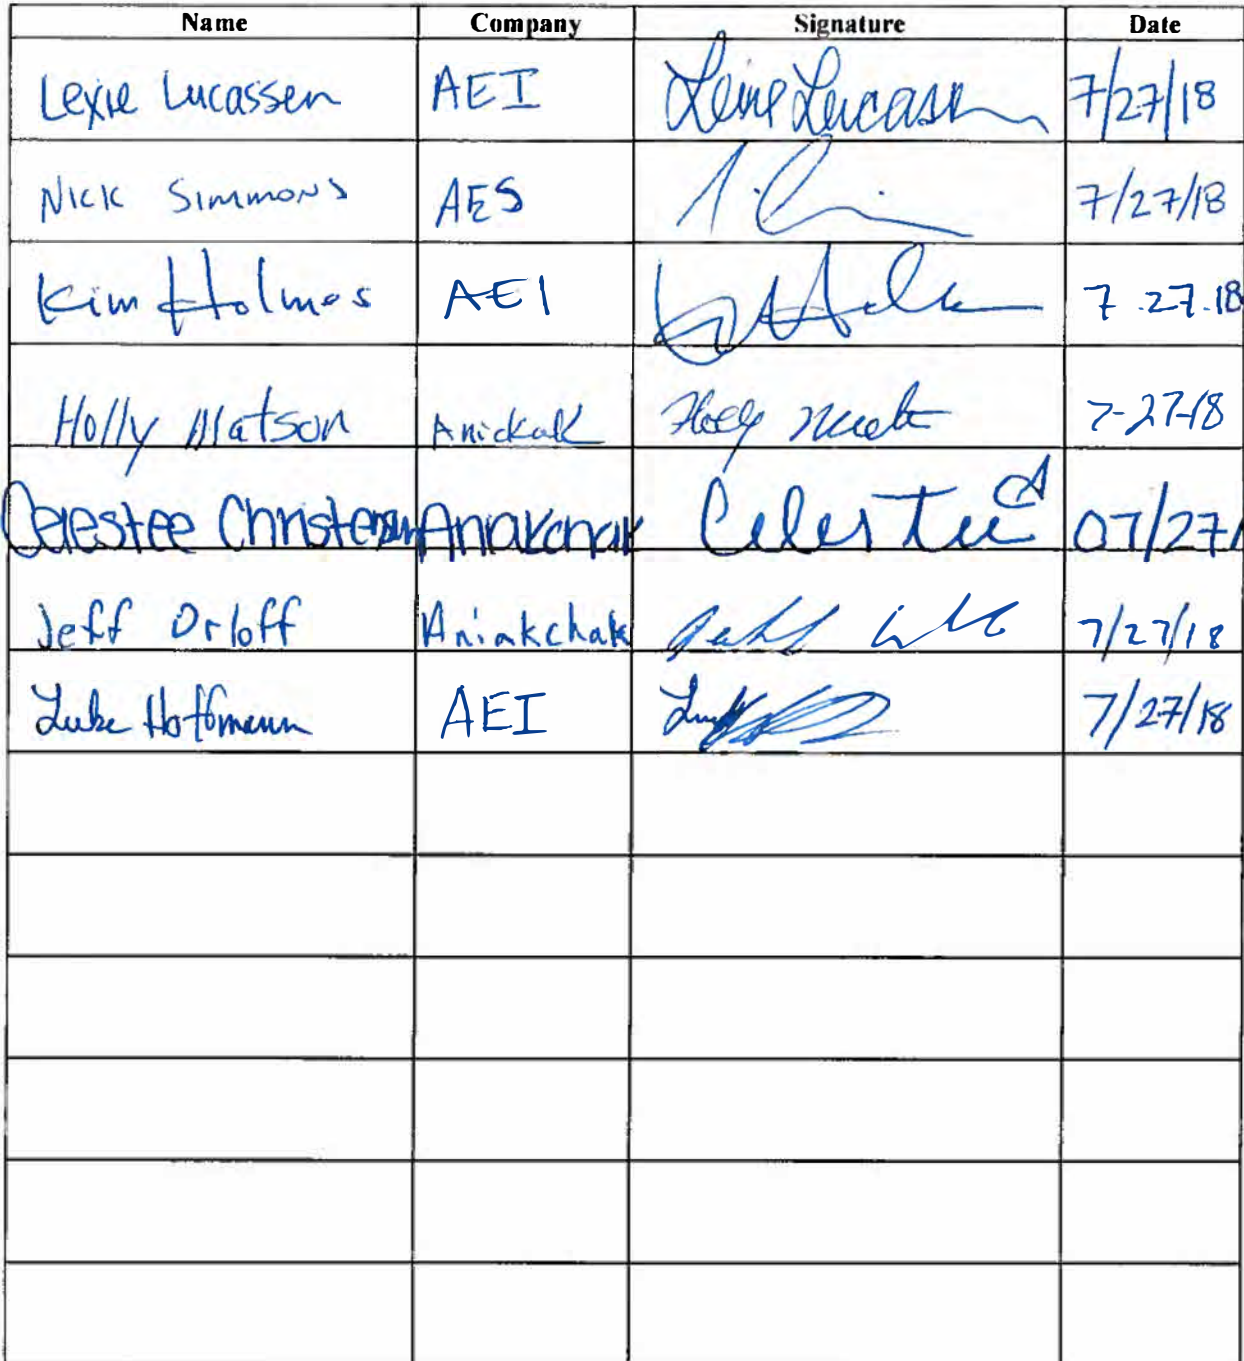 Name Company Signature Date
Lexie Lucassen AEI Lexie Lucassen 7/27/18
Nick Simmons AES 7/27/18
Kim Holmes AEI 7.27.18
Holly Matson Anickak Holly 7-27-18
Celestee Christensen Aniakchak Celestee 07/27/
Jeff Orloff Aniakchak 7/27/18
Luke Hoffmann AEI 7/27/18